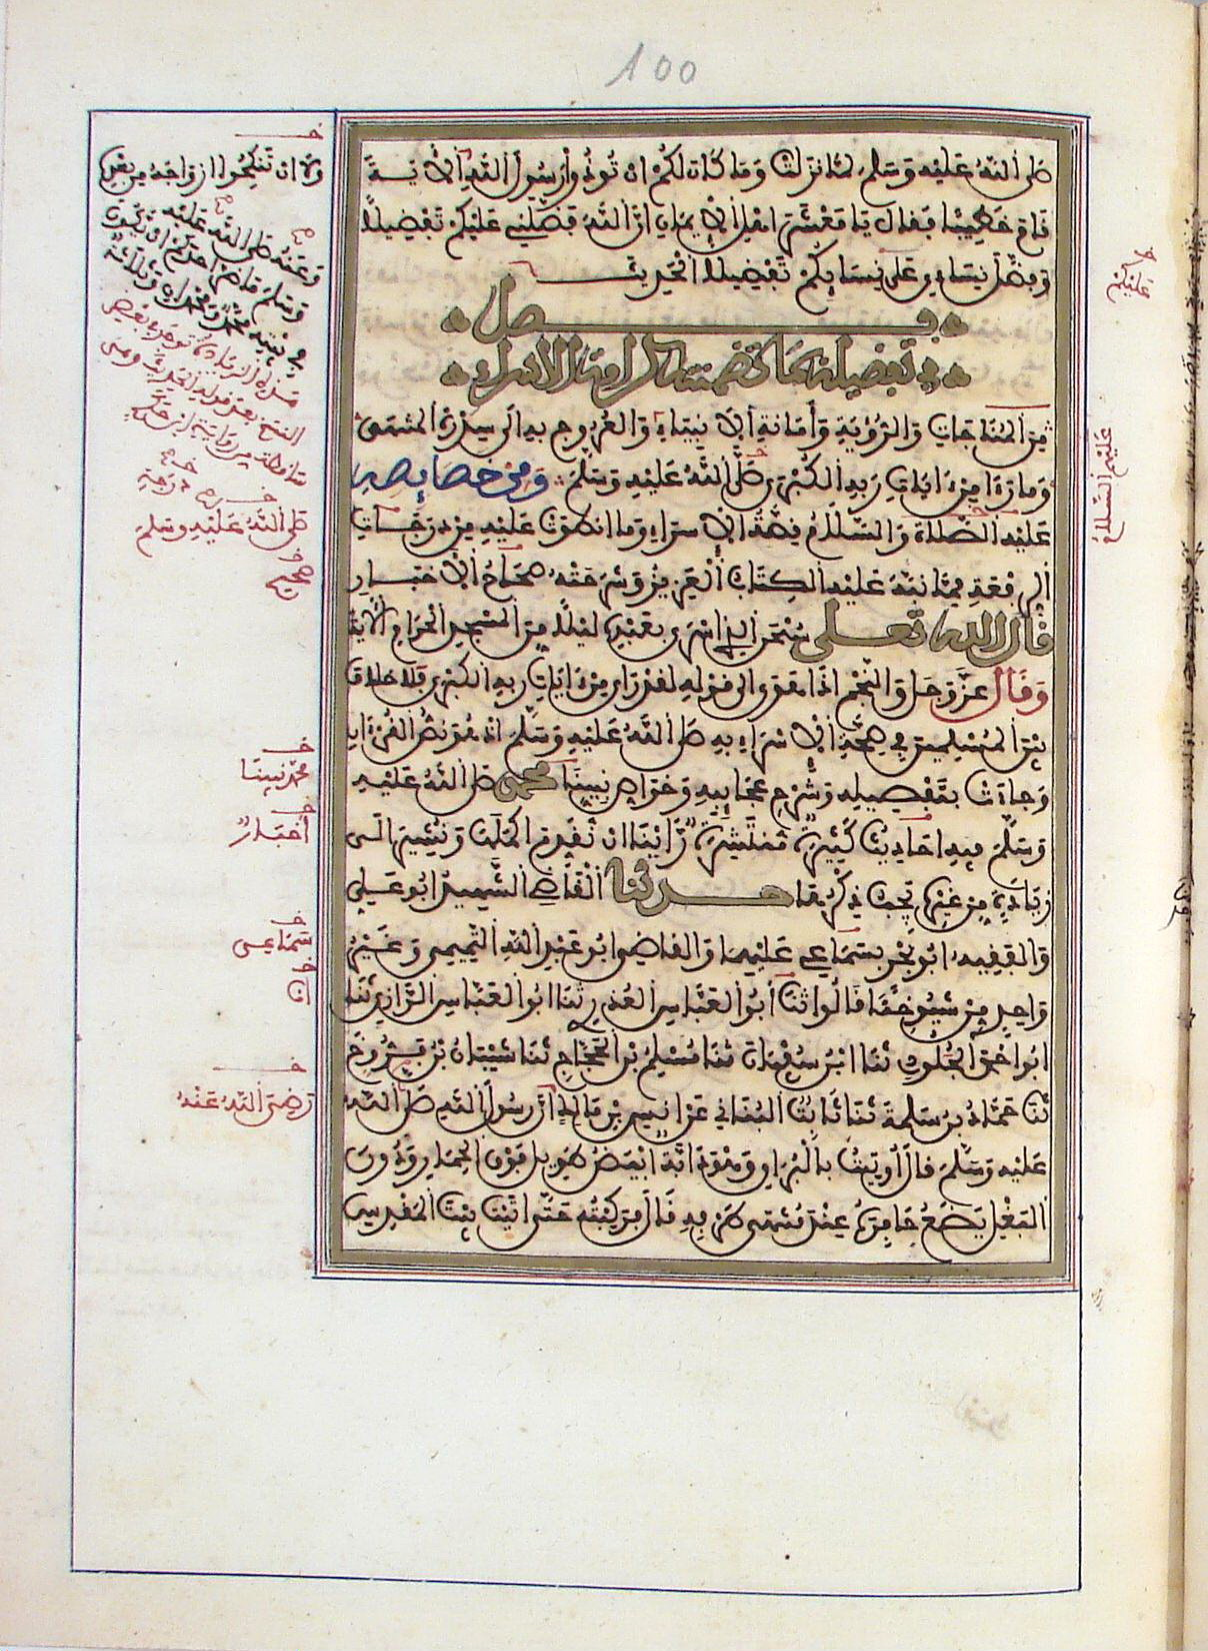 100
صلى الله عليه وسلم لما نزلت وما كان لكم ان توذوا رسول الله الاية
قام خطيبا فقال يا معشر اهل الايمان ان الله فضلني عليكم تفضيلا
وفضل نساءي على نسايكم تفضيلا الحديث
فصل
في تفضيله بما تضمنته كرامة الاسراء
من المناجات والرؤية وامامة الانبياء والعروج به الى سدرة المنتهى
وما رءا من ءايات ربه الكبرى صلى الله عليه وسلم ومن خصايصه
عليه الصلاة والسلام قصة الاسراء وما انطوت عليه من درجات
الرفعة مما نبه عليه الكتاب العزيز وشرحته صحاح الاخبار
قال الله تعلى سبحن الذي اسرى بعبده ليلا من المسجد الحرام الاية
وقال عز وجل والنجم اذا هوى الى قوله لقد رأى من ءايات ربه الكبرى فلا خلاف
بين المسلمين في صحة الاسراء به صلى الله عليه وسلم اذ هو نص القرءان
وجاءت بتفصيله وشرح عجايبه وخواص نبينا محمد صلى الله عليه
وسلم فيه احاديث كثيرة منتشرة رأينا ان نقدم اكملها ونشير الى
زيادة من غيره يجب ذكرها حدثنا القاضي الشهيد ابو علي
والفقيه ابو بحر بسماعي عليهما والقاضي ابو عبد الله التميمي وغير
واحد من شيوخنا قالوا ثنا أبو العباس العذري ثنا ابو العباس الرازي ثنا
ابو احمد الجلودي ثنا ابن سفيان ثنا مسلم بن الحجاج ثنا شيبان بن فروخ
ثنا حماد بن سلمة ثنا ثابت البناني عن انس بن مالك ان رسول الله صلى الله
عليه وسلم قال أوتيت بالبراق وهو دابة ابيض طويل فوق الحمار ودون
البغل يضع حافره عند منتهى طرفه قال فركبته حتى اتيت بيت المقدس
عليكم
عليهم السلام
ولا ان تنكحوا ازواجه من بعده
صلى الله عليه وسلم
صحيح
محمد نبينا
أخبار
سماعي
ان
رضي الله عنه